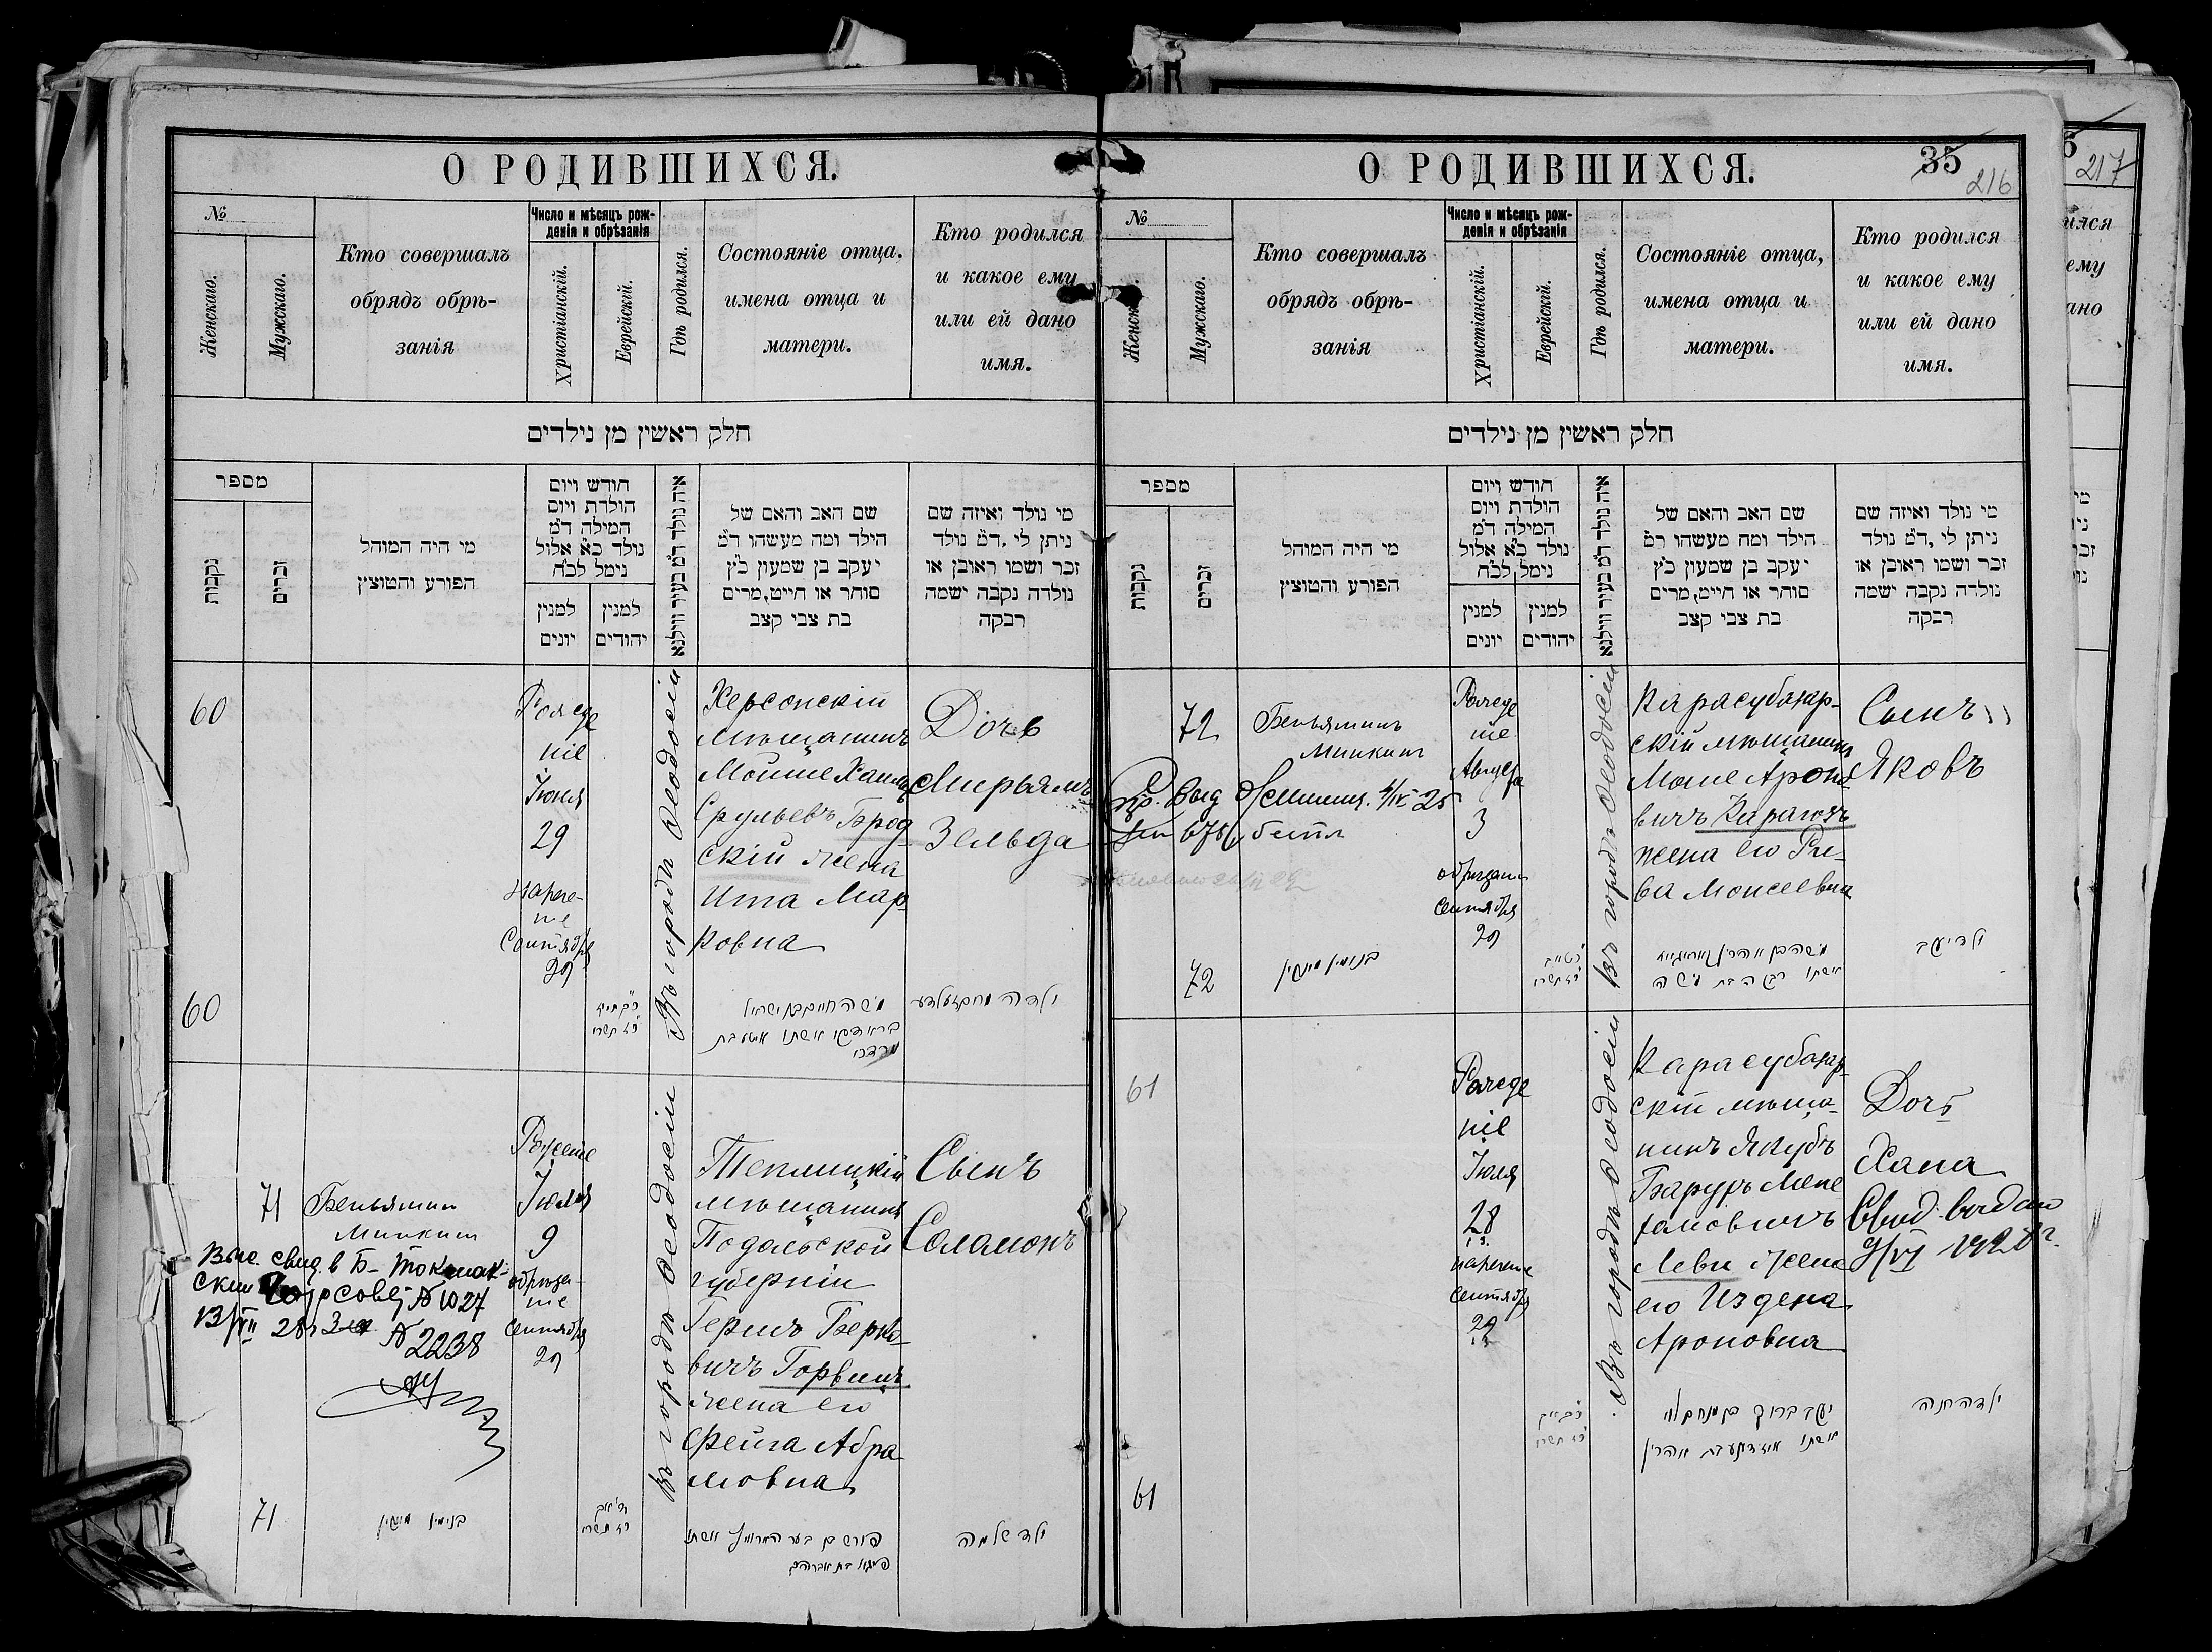 О РОДИВШИХСЯ.
№
Женскаго.
Мужскаго.
Кто совершалъ
обрядъ обрѣ-
занія
Число и мѣсяцъ рож-
денія и обрѣзанія
Христіанскій.
Еврейскій.
Гдѣ родился.
Состояніе отца,
имена отца и
матери.
Кто родился
и какое ему
или ей дано
имя.
חלק ראשין מן נילדים
מספר
נקבות
זכרים
מי היה המוהל
הפורע והמוצץ
חודש ויום
הולדת ויום
המילה ד״מ
נולד כ״א אלול
נימל לכ״ח
למנין
יונים
למנין
יהודים
איה נולד ד״מ בעיר ווילנא
שם האב והאם של
הילד ומה מעשהו ד״מ
יעקב בן שמעון כ״ץ
סוחר או חייט, מרים
בת צבי קצב
מי נולד ואיזה שם
ניתן לי, ד״מ נולד
זכר ושמו ראובן או
נולדה נקבה ישמה
רבקה
60
Рожде
ніе
Іюня
29
Нарече-
ніе
Сентября
29
Въ городѣ Ѳеодосіи
Херсонскій
мѣщанинъ
Мойше Хаимъ
Срульевъ Брод
скій жена
Ита Мар
ковна
Дочь
Мирьямъ
Зельда
60
משה חיים בן ישראל
בראדסקי אשתו איטע בת
מרדכי
71
Беньямин
Минкин
Рожденіе
Іюля
9
обрѣза-
ніе
Сентября
29
Въ городѣ Ѳеодосіи
Теплицкій
мѣщанинъ
Подольской
губерніи
Герш Берко-
вичъ Горвицъ
жена его
Фейга Абра
мовна
Сынъ
Соламонъ
Выс. свид. в Б- Токмак-
ский горсовет № 1027
13/VII 28г
№ 2238
71
בנימין מינקין
הירש בן בער הורוויץ אשתו
פייגא בת אברהם
ילד שלמה
О РОДИВШИХСЯ.
35
216
№
Женскаго.
Мужскаго.
Кто совершалъ
обрядъ обрѣ-
занія
Число и мѣсяцъ рож-
денія и обрѣзанія
Христіанскій.
Еврейскій.
Гдѣ родился.
Состояніе отца,
имена отца и
матери.
Кто родился
и какое ему
или ей дано
имя.
חלק ראשין מן נילדים
מספר
נקבות
זכרים
מי היה המוהל
הפורע והמוצץ
חודש ויום
הולדת ויום
המילה ד״מ
נולד כ״א אלול
נימל לכ״ח
למנין
יונים
למנין
יהודים
איה נולד ד״מ בעיר ווילנא
שם האב והאם של
הילד ומה מעשהו ד״מ
יעקב בן שמעון כ״ץ
סוחר או חייט, מרים
בת צבי קצב
מי נולד ואיזה שם
ניתן לי, ד״מ נולד
זכר ושמו ראובן או
נולדה נקבה ישמה
רבקה
72
Беньяминъ
Минкинъ
Рожде
ніе
Августа
3
обрѣзаніе
Сентября
29
Въ городѣ Ѳеодосіи
Карасубазар-
скій мѣщанинъ
Моше Ароно
вичъ Карагозъ
жена его Рие-
ва Моисеевна
Сынъ
Яковъ
72
בנימין מינקין
אשתו רבקה בת משה
ילד יעקב
61
Рожде
ніе
Іюля
28
нареченіе
Сентября
29
Въ городѣ Ѳеодосіи
Карасубазар-
скій мѣща-
нинъ Якубъ
Барухъ Мена
хамовичъ
Леви жена
его Издена
Ароновна
Дочь
Хана
Свид. выдано
9/VI 1928г.
61
יעקב ברוך בן מנחם לוי
ילדה חנה
217